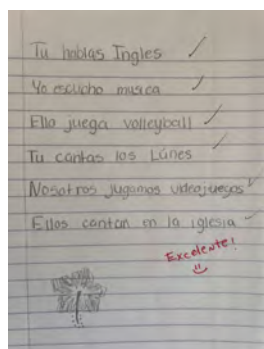 Tu hablas Ingles
Yo escucho musica
Ella juega volleyball
Tu cantas los Lúnes
Nosotros jugamos videojuegos
Ellos cantan en la iglesia
Excelente!